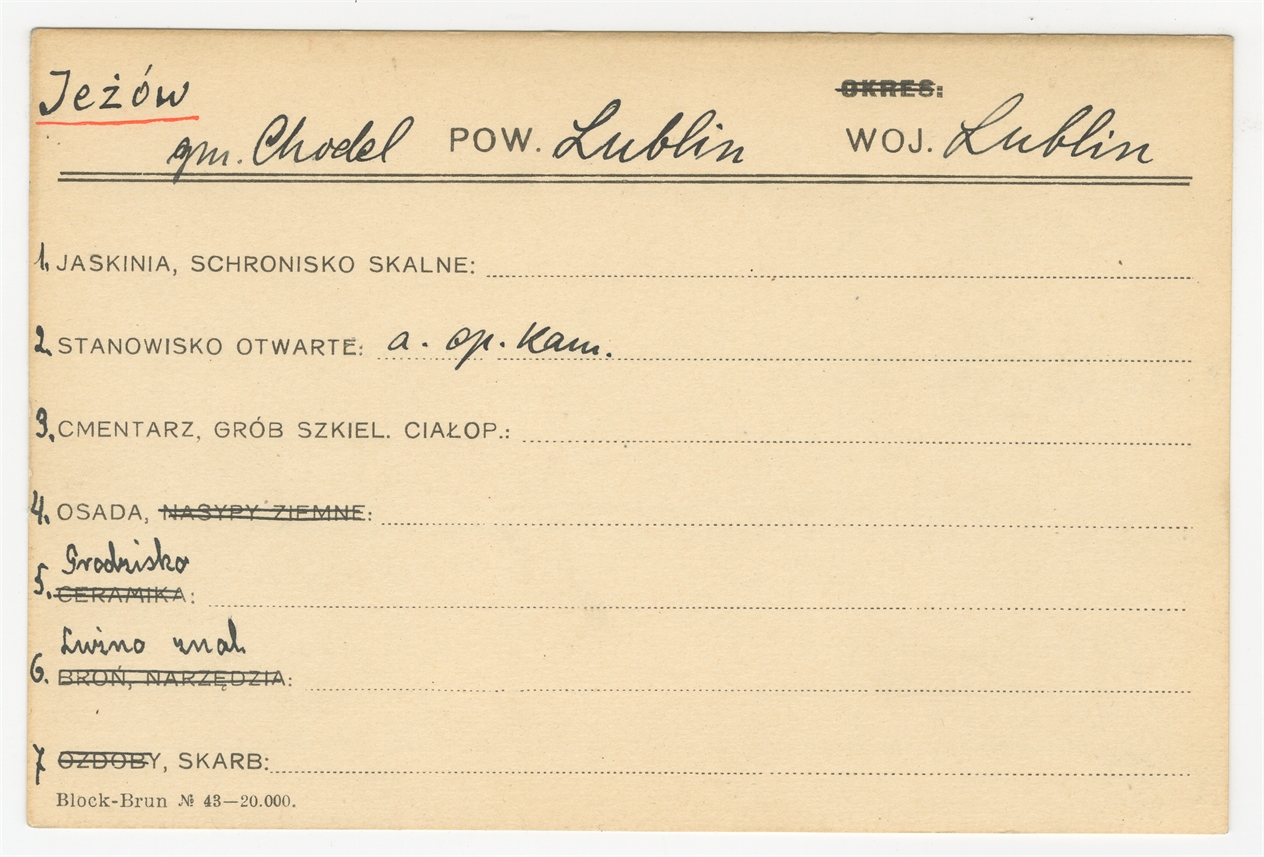 Jeżów
OKRES:
gm. Chodel POW. Lublin WOJ. Lublin
1. JASKINIA, SCHRONISKO SKALNE:
2. STANOWISKO OTWARTE: a. ep. Kam.
3. CMENTARZ, GRÓB SZKIEL. CIAŁOP.:
4. OSADA, NASYPY ZIEMNE:
Grodzisko
5. CERAMIKA:
Luźno znal.
6. BROŃ, NARZĘDZIA:
7 OZDOBY, SKARB:
Block-Brun № 43—20.000.